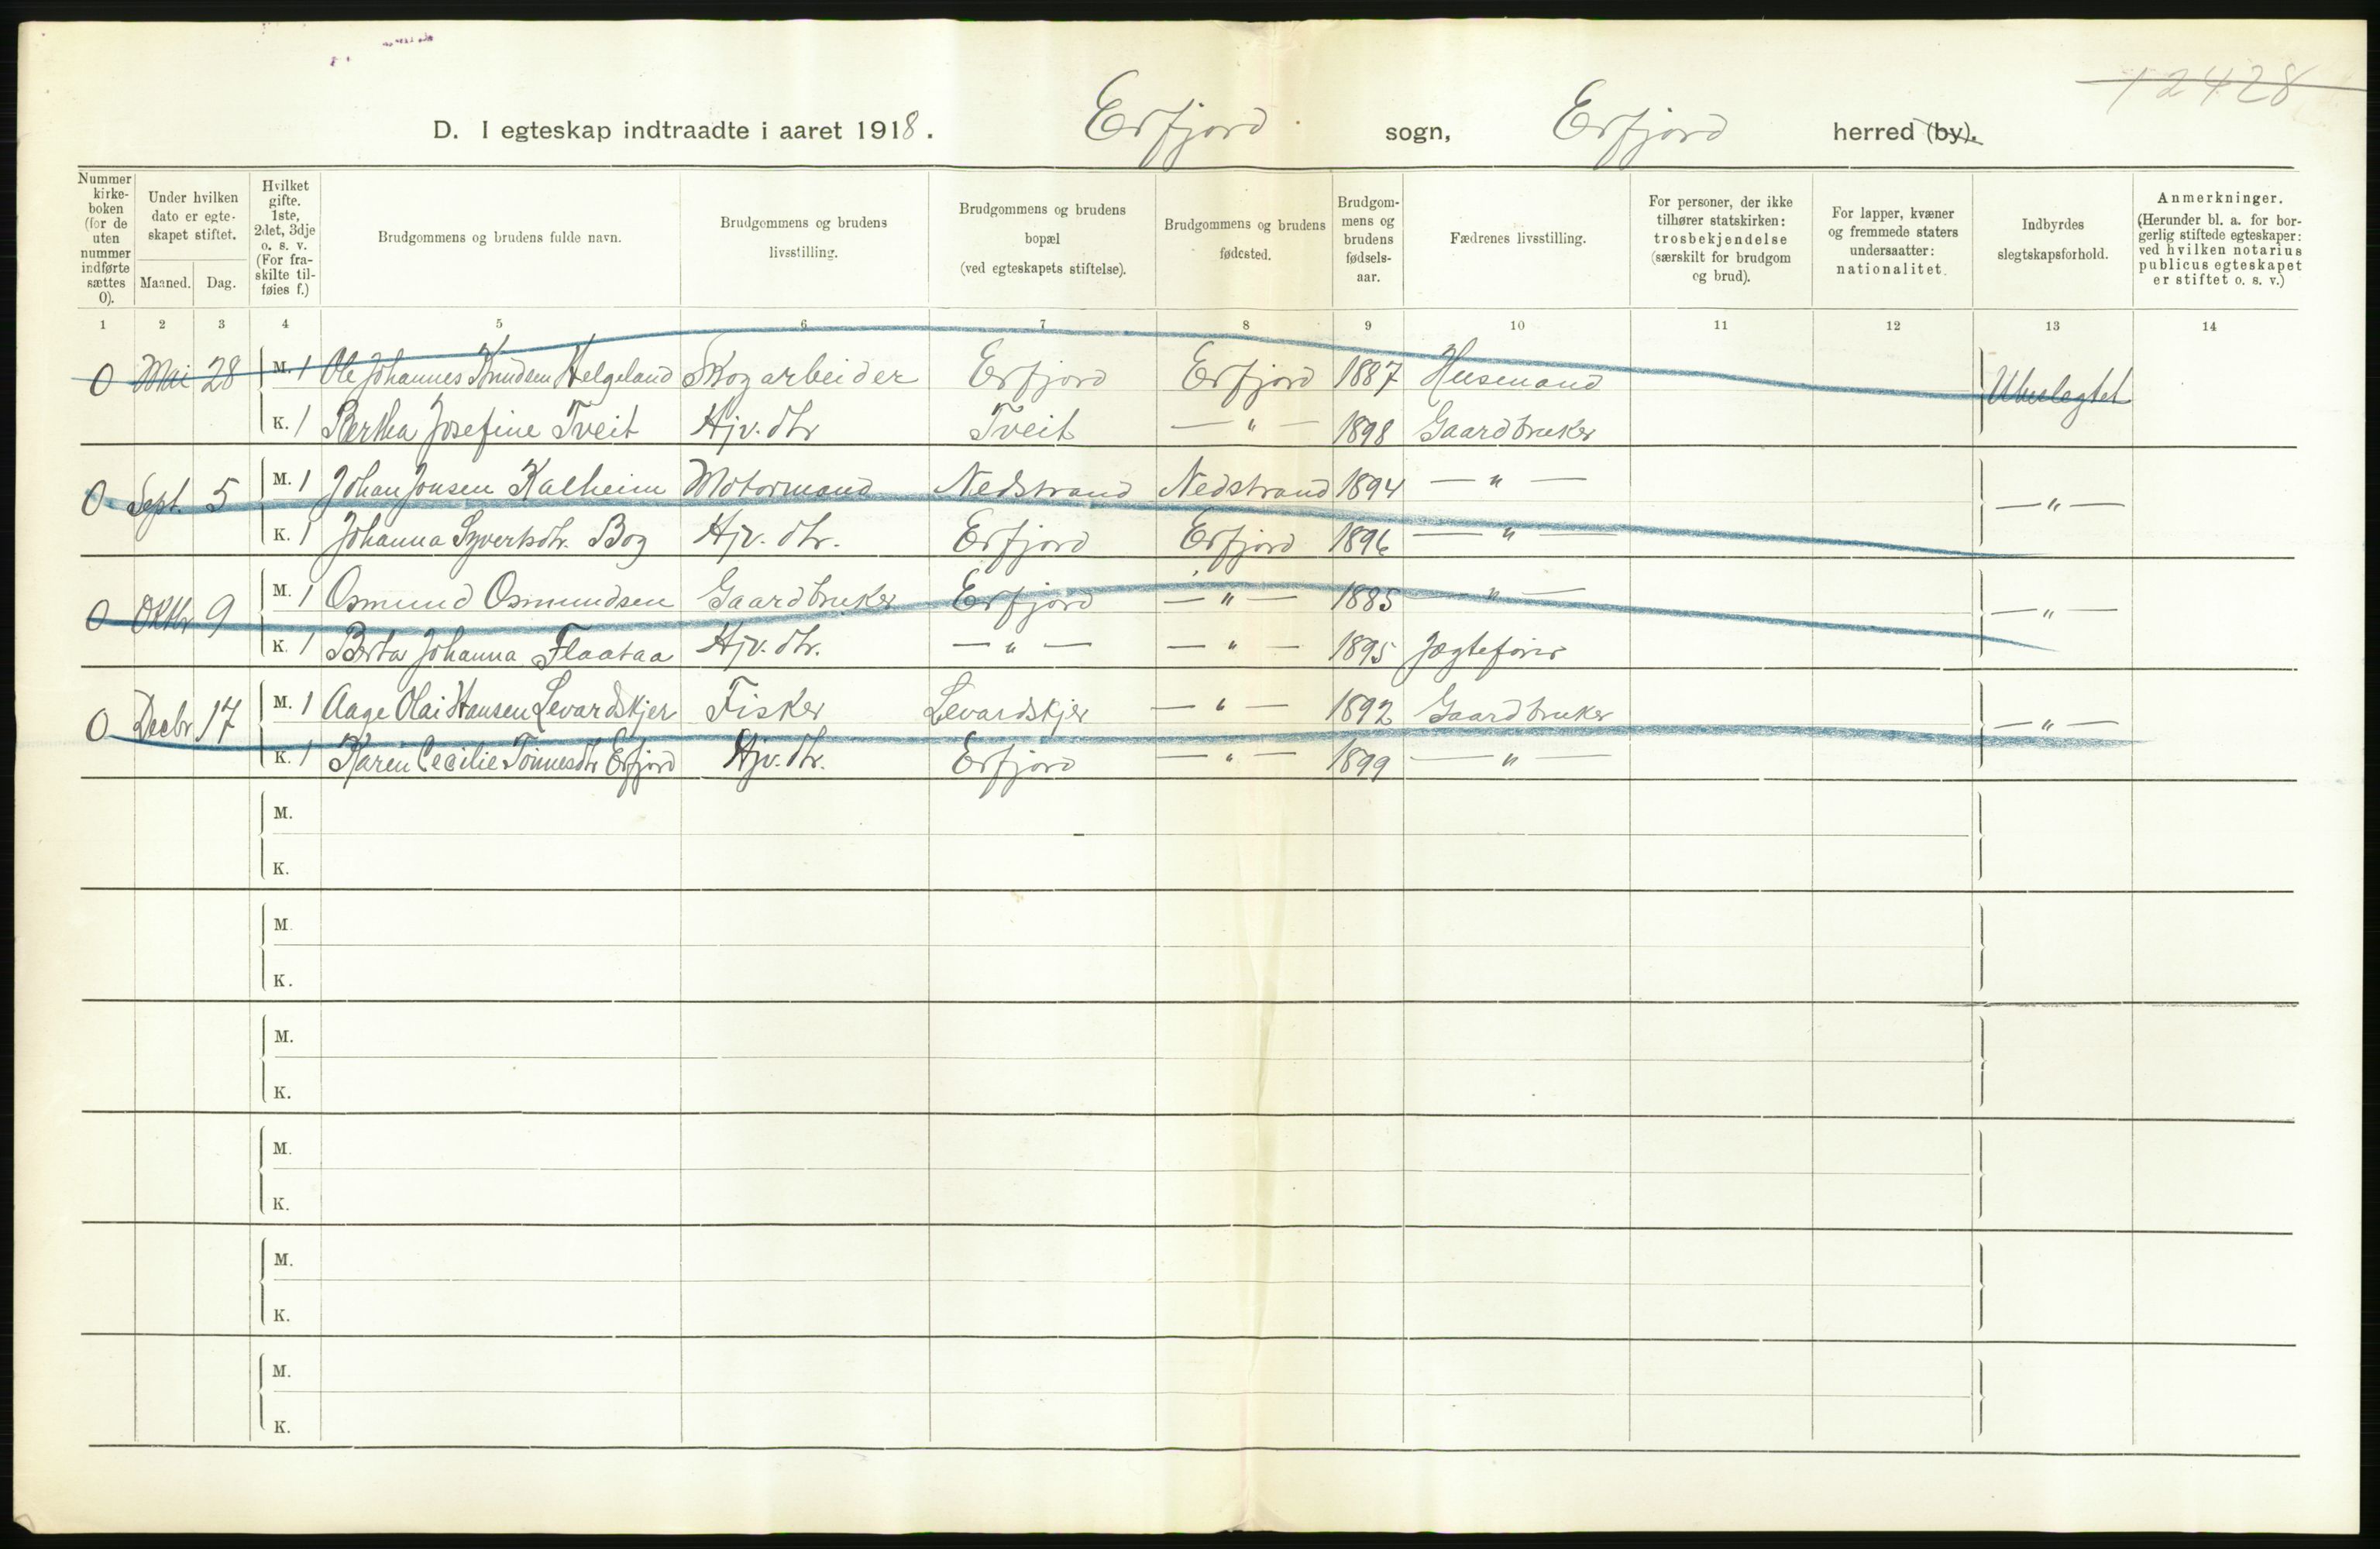 12428
D. I egteskap indtraadte i aaret 1918. Erfjord sogn, Erfjord herred (by).
Nummer kirkeboken (for de uten nummer indførte sættes 0).
Under hvilken dato er egteskapet stiftet.
Maaned. Dag.
Hvilket gifte. 1ste, 2det, 3dje o. s. v. (For fraskilte tilføies f.)
Brudgommens og brudens fulde navn.
Brudgommens og brudens livsstilling.
Brudgommens og brudens bopæl (ved egteskapets stiftelse).
Brudgommens og brudens fødested.
Brudgommens og brudens fødselsaar.
Fædrenes livsstilling.
For personer, der ikke tilhører statskirken: trosbekjendelse (særskilt for brudgom og brud).
For lapper, kvæner og fremmede staters undersaatter: nationalitet.
Indbyrdes slegtskapsforhold.
Anmerkninger. (Herunder bl. a. for borgerlig stiftede egteskaper: ved hvilken notarius publicus egteskapet er stiftet o. s. v.)
1 2 3 4 5 6 7 8 9 10 11 12 13 14
0 Mai 28 M. 1 Ole Johannes Knudsen Helgeland Skogarbeider Erfjord Erfjord 1887 Husmand Ubeslegtet
K. 1 Bertha Josefine Tveit Hjv. dtr Tveit — " — 1898 Gaardbruker
0 Sept. 5 M. 1 Johan Jonsen Kalheim Motormand Nedstrand Nedstrand 1894 — " — — " —
K. 1 Johanna Syvertsdtr. Bog Hjv. dtr. Erfjord Erfjord 1896 — " —
0 Oktbr 9 M. 1 Osmund Osmundsen Gaardbruker Erfjord — " — 1885 — " — — " —
K. 1 Berta Johanna Flaataa Hjv. dtr. — " — — " — 1895 Jægtefører
0 Decbr 17 M. 1 Aage Olai Hansen Levardskjer Fisker Levardskjer — " — 1892 Gaardbruker — " —
K. 1 Karen Cecilie Tönnesdtr Erfjord Hjv. dtr. Erfjord — " — 1899 — " —
M.
K.
M.
K.
M.
K.
M.
K.
M.
K.
M.
K.